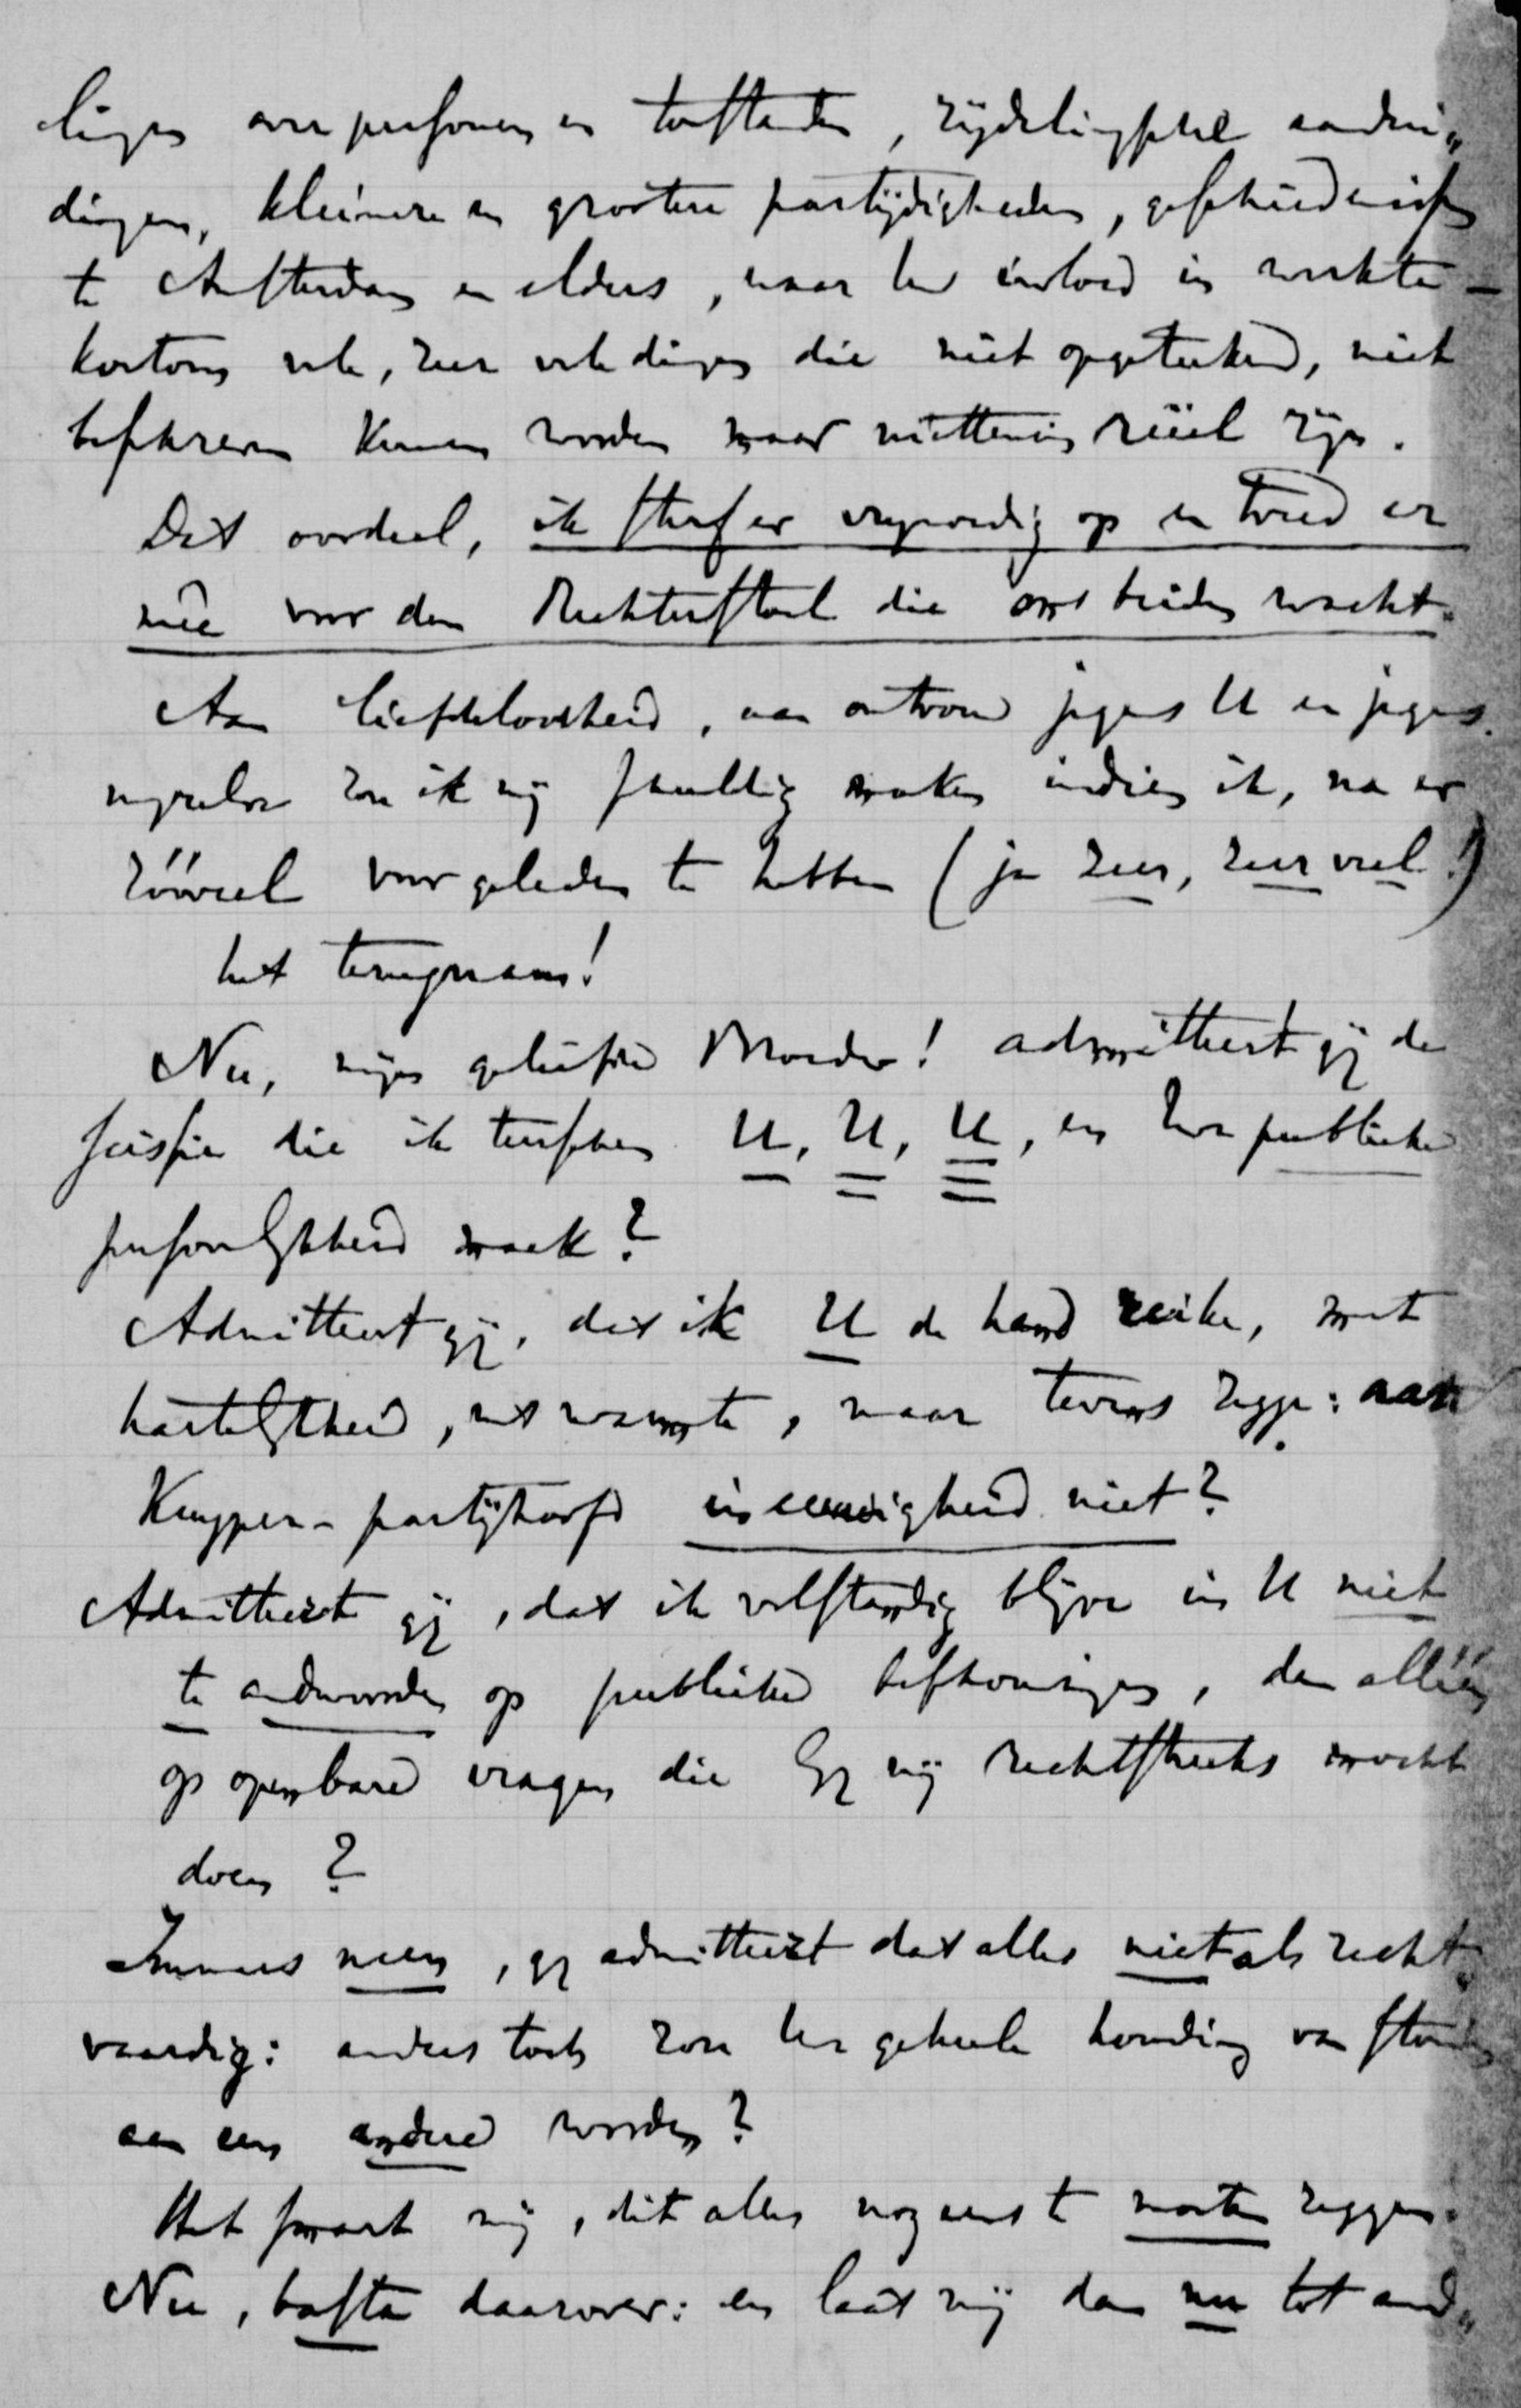 lingen over personen en toestanden, zijdelingsche aandui„
dingen, kleinere en grootere partijdigheden, geschiedenissen
te Amsterdam en elders, waar Uw invloed in werkte –
kortom vele, zeer vele dingen die niet opgeteekend, niet
beschreven kunnen worden maar niettemin reëel zijn.
Dit oordeel, ik sterf er vrijmoedig op en treed er
meê voor den Rechterstoel die ons beiden wacht.
Aan liefdeloosheid, aan ontrouw jegens U en jegens
mijzelve zou ik mij schuldig maken indien ik, na er
zóóveel voor geleden te hebben (ja zeer, zeer veel!)
het terugnam!
Nu, mijn geliefde Broeder! admitteert gij de
scissie die ik tusschen U, U, U, en Uw publieke
persoonlijkheid maak?
Admitteert gij, dat ik U de hand reike, met
hartelijkheid, met warmte, maar tevens zegge: aan
Kuyper-partijhoofd in eeuwigheid niet?
Admitteert gij, dat ik volstandig blijve in U niet
te andwoorden op publieke beschouwingen, dan alléén
op openbare vragen die Gij mij rechtstreeks mocht
doen?
Immers neen, gij admitteert dat alles niet als recht„
vaardig: anders toch zou Uw geheele houding van stonden
aan een andere worden?
Het smart mij, dit alles nog eens te moeten zeggen.
Nu, basta daarover: en laat mij dan nu tot and„